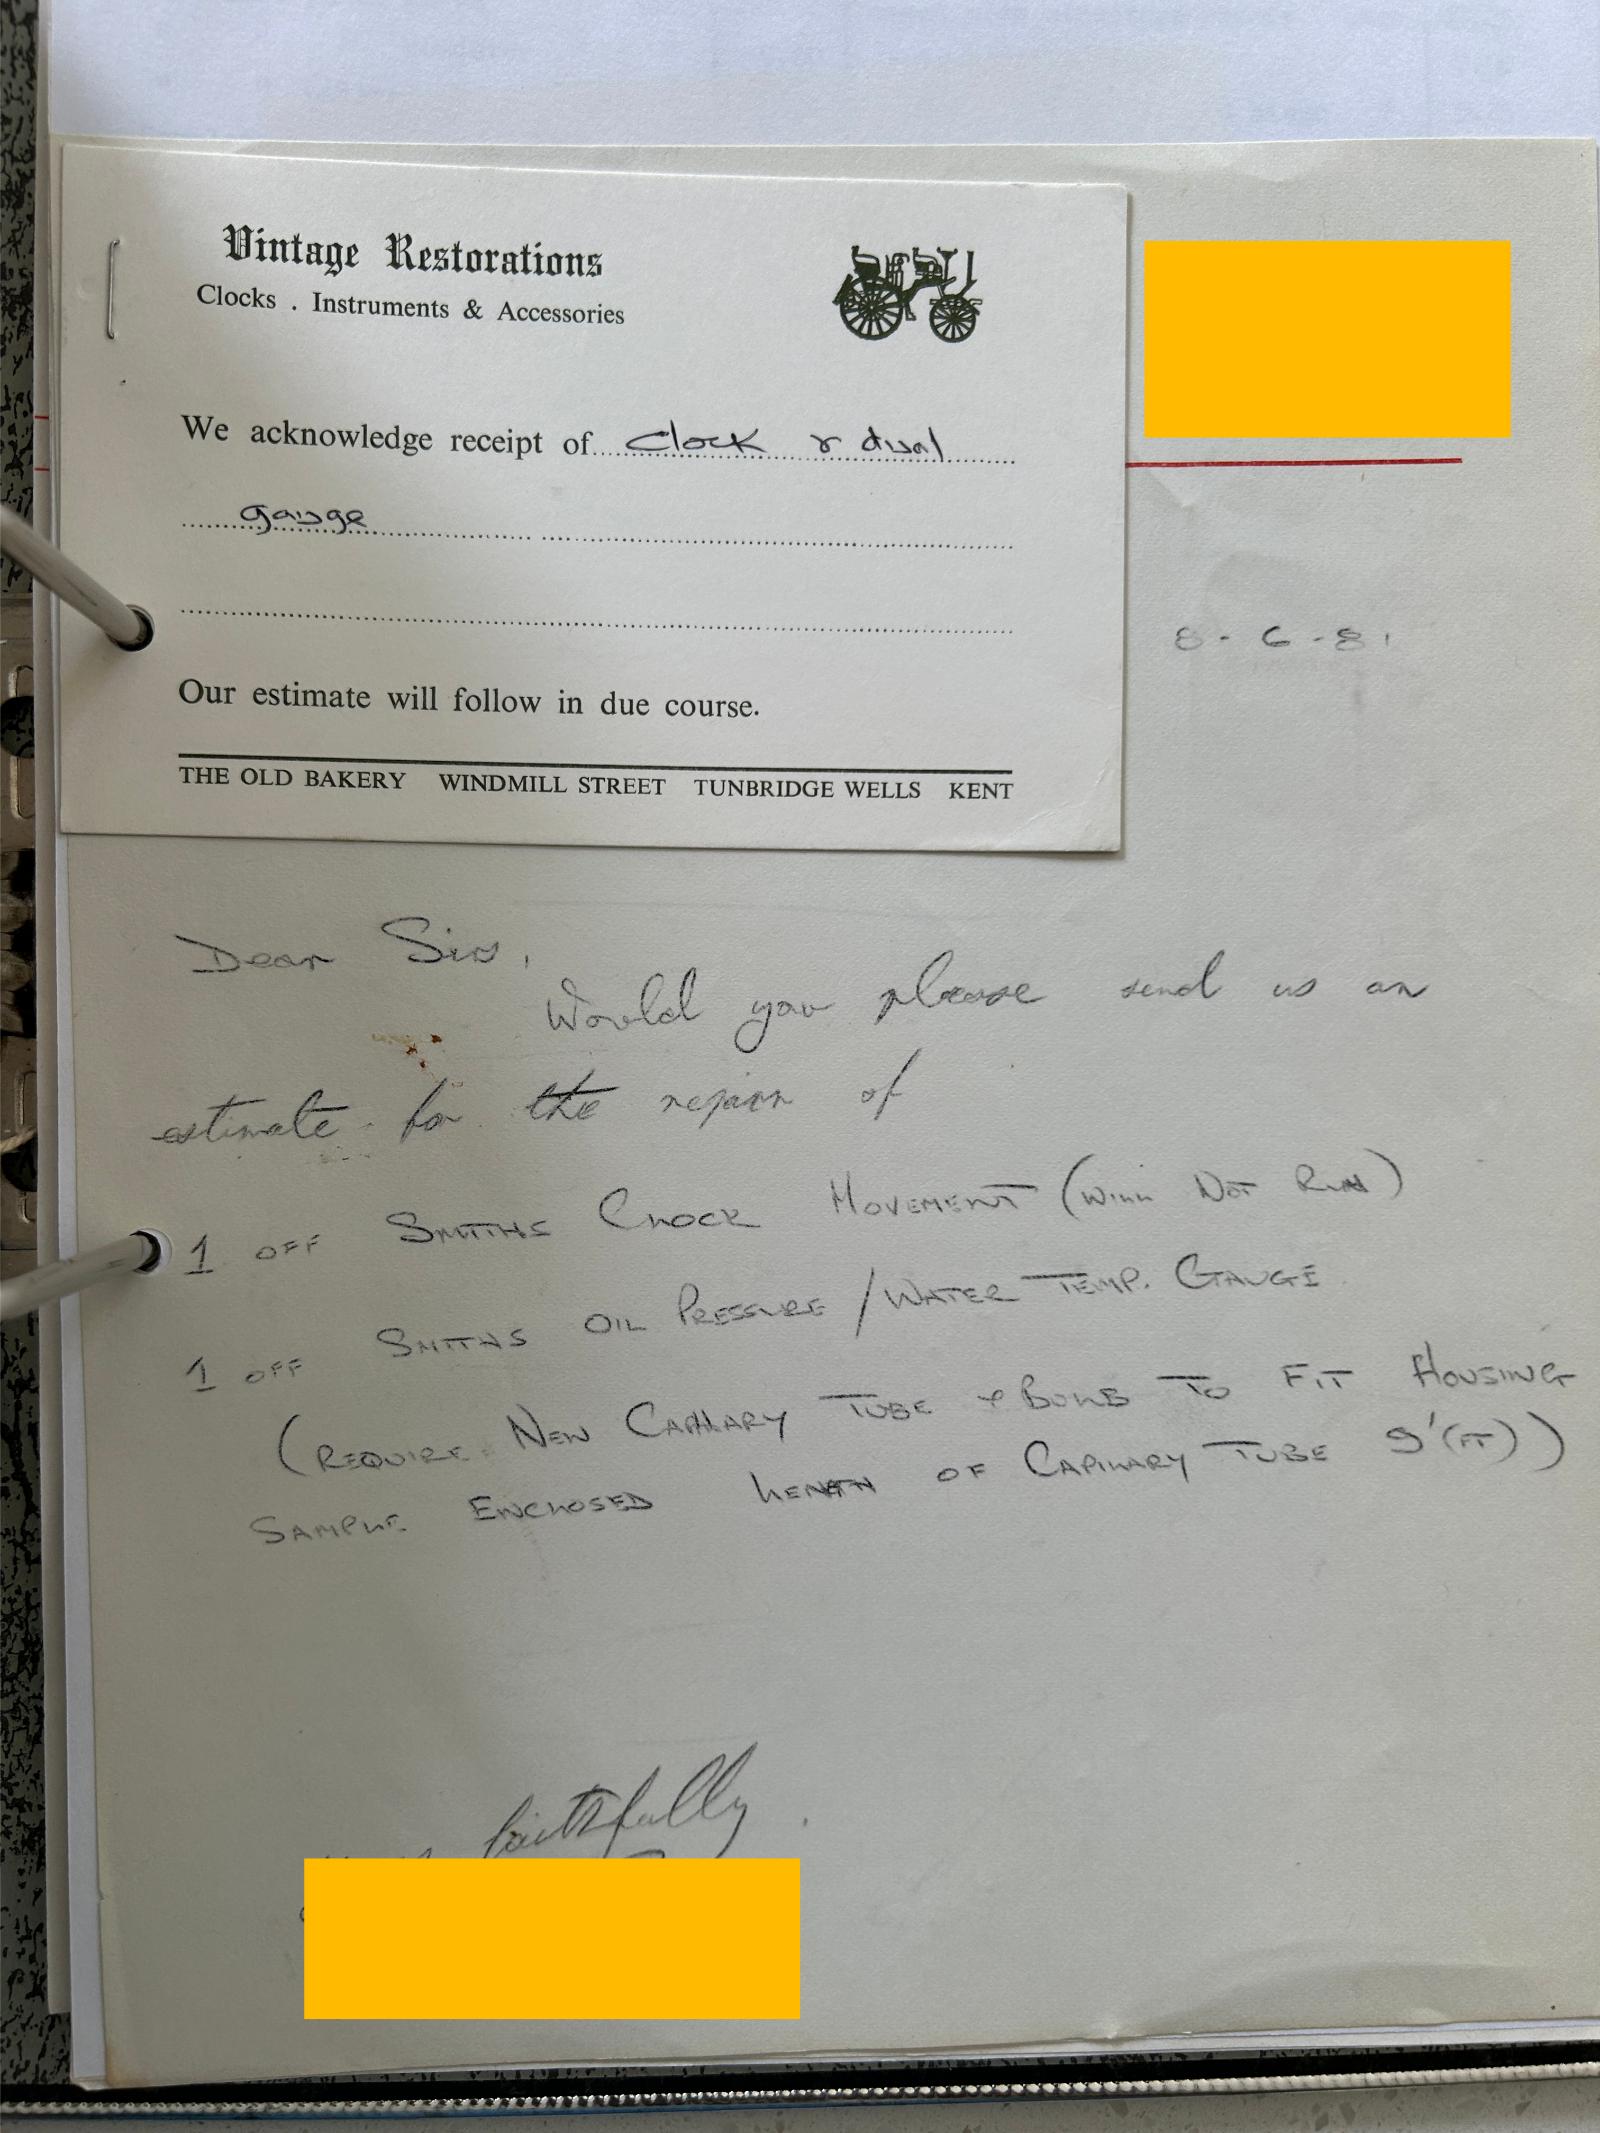 Vintage Restorations
Clocks . Instruments & Accessories
We acknowledge receipt of clock & dual
gauge
Our estimate will follow in due course.
THE OLD BAKERY WINDMILL STREET TUNBRIDGE WELLS KENT
8 - 6 - 81
Dear Sirs,
Would you please send us an
estimate for the repair of
1 OFF SMITHS CLOCK MOVEMENT (WILL NOT RUN)
1 OFF SMITHS OIL PRESSURE / WATER TEMP. GAUGE
(REQUIRE NEW CAPILLARY TUBE & BULB TO FIT HOUSING
SAMPLE ENCLOSED LENGTH OF CAPILLARY TUBE 9'(FT))
faithfully